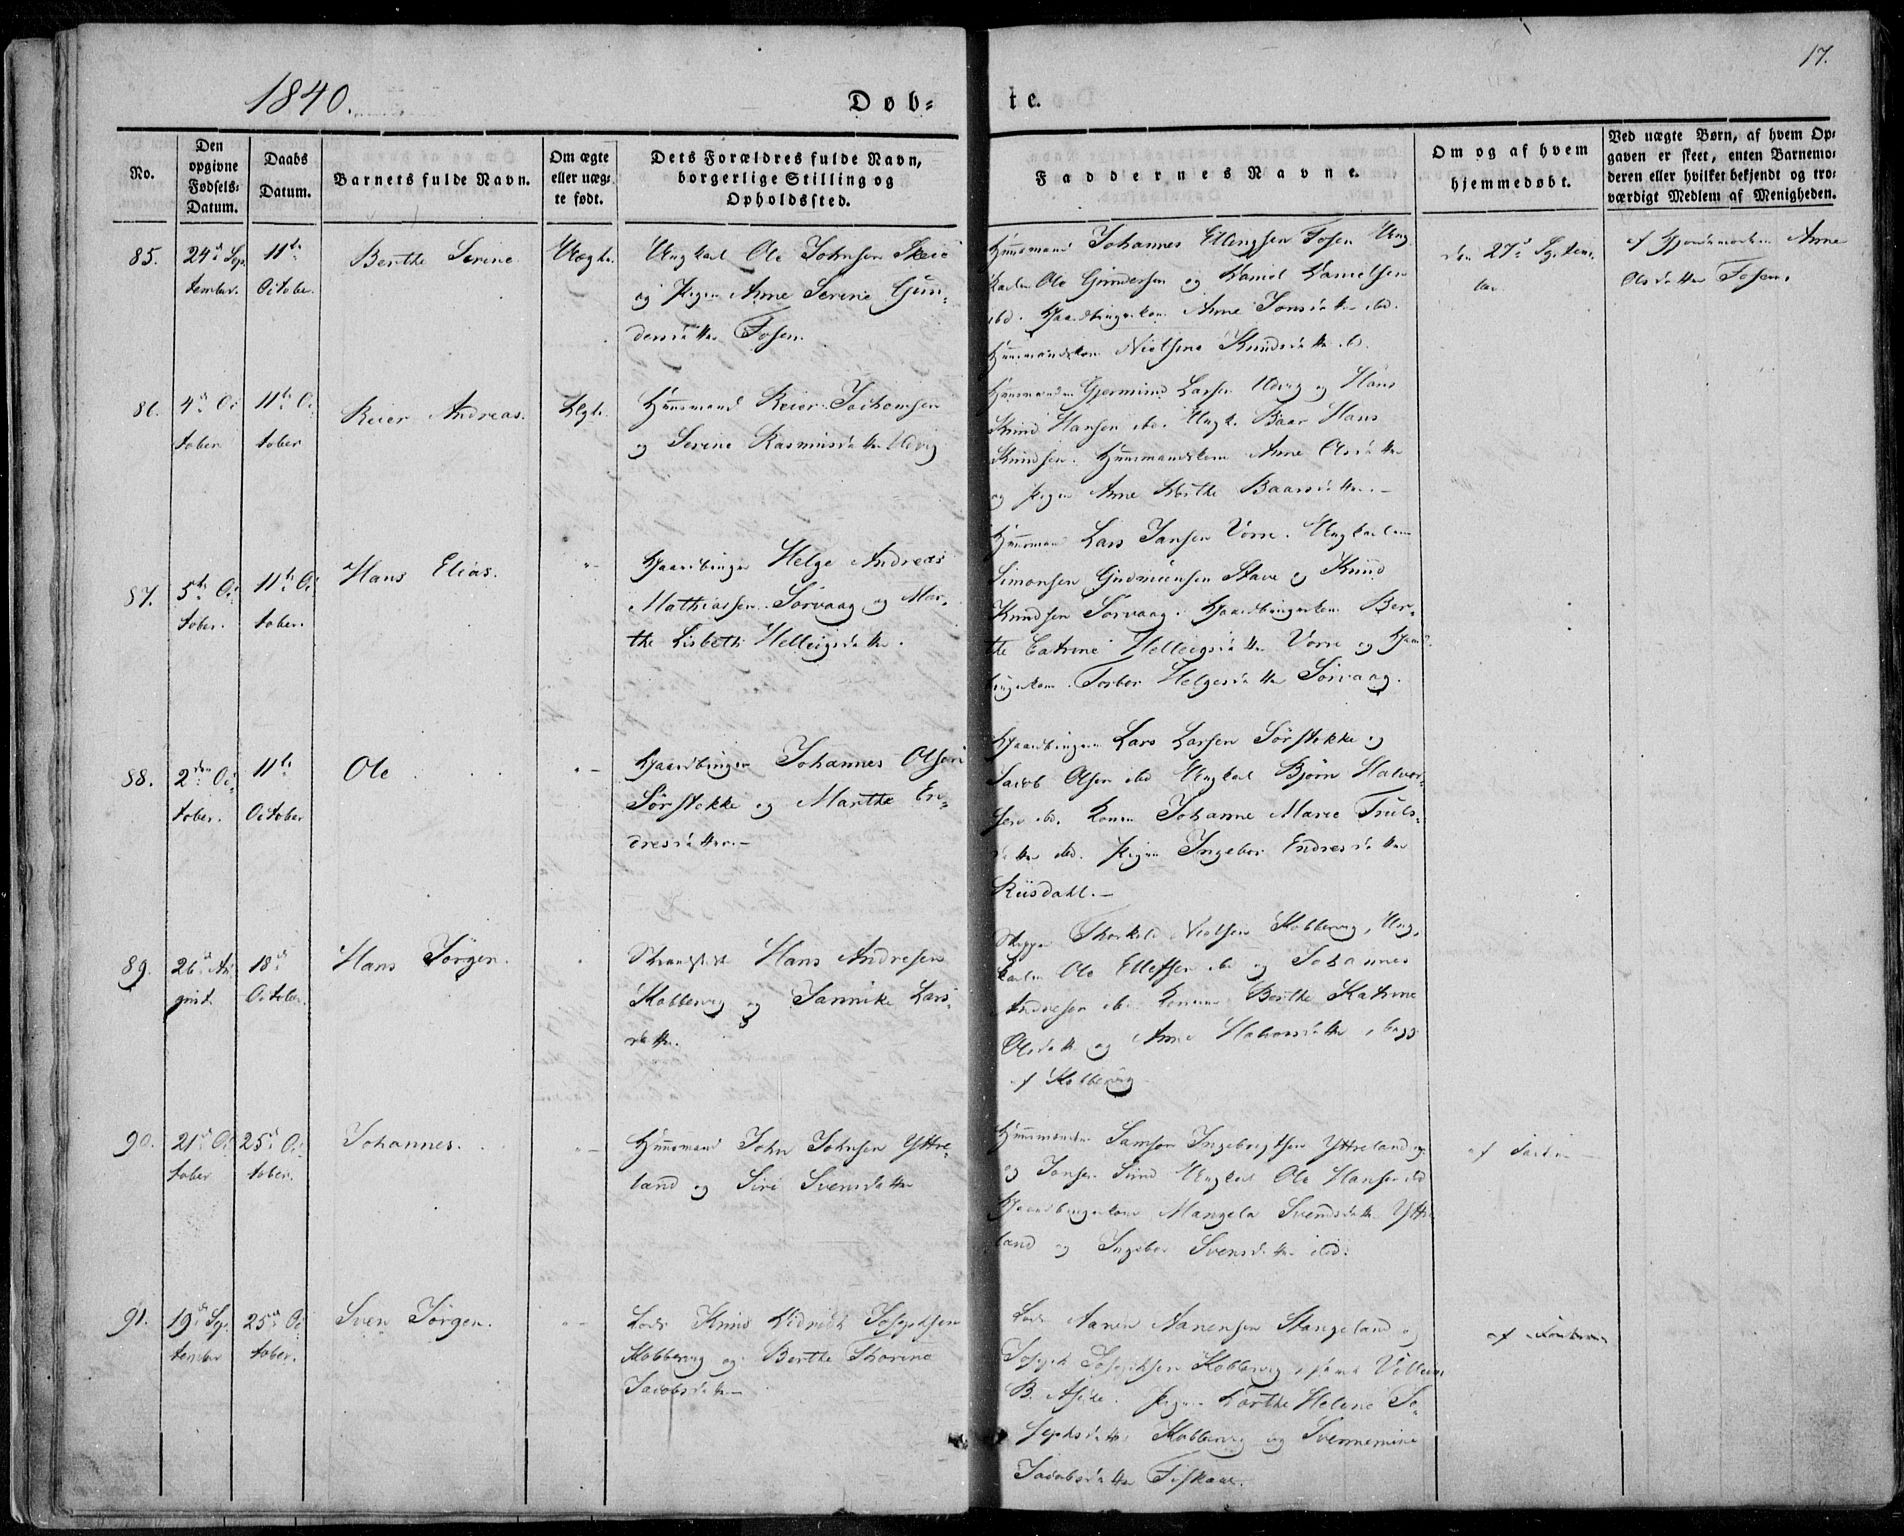 1840.
Døb-
te.
17.
No.
Den
opgivne
Fødsels-
Datum.
Daabs
Datum.
Barnets fulde Navn.
Om ægte
eller uæg-
te født.
Dets Forældres fulde Navn,
borgerlige Stilling og
Opholdssted.
Faddernes Navne.
Om og af hvem
hjemmedøbt.
Ved uægte Børn, af hvem Op-
gaven er skeet, enten Barnemo-
deren eller hvilket bekjendt og tro-
værdigt Medlem af Menigheden.
85.
24de Sep-
tember.
11te
October.
Berthe Serine
Uægte
Ungkarl Ole Johnsen Skeie
og Pigen Anne Serine Gun-
dersdatter Fosen.
Huusmand Johannes Ellingsen Fosen Ung-
karlene Ole Gundersen og Daniel Danielsen
ibd. Gaardbrugerkone Anne Jonsdatter ibd.
Huusmandskone Nielsine Knudsdatter ibd.
den 27de Septem-
ber
af Gjordemoderen Anne
Olsdatter Fosen.
86.
4de Oc-
tober
11te Oc-
tober
Reier Andreas.
Ægte
Huusmand Reier Jochomsen
og Serine Rasmusdatter Udvig
Huusmændene Gjermund Larsen Udvig og Hans
Knud Hansen ibd. Ungk. Baar Hans
Knudsen. Huusmandskone Anne Olsdatter
og Pigen Anne Dorthe Baarsdatter.-
87.
5te Oc-
tober.
11te Oc-
tober.
Hans Elias.
"-
Gaardbruger Helge Andreas
Mathiassen Sørvaag og Mar-
the Lisbeth Helleigsdatter.
Huusmand Lars Jansen Vorre. Ungkarlene
Simonsen Gudmunsen Stave og Knud
Knudsen Sørvaag. Gaardbrugerkone Ber-
the Catrine Helleigsdatter Vorre og Gaard-
brugerkone Torbor Helgesdatter Sørvaag.
88.
2den Oc-
tober.
11te
October
Ole
"-
Gaardbruger Johannes Olsen
Sørstokke og Marthe En-
dresdatter.-
Gaardbrugerne Lars Larsen Sørstokke og
Jacob Olsen ibd Ungkarl Bjørn Halvor-
sen ibd. Konen Johanne Marie Truls-
datter ibd. Pigen Ingebor Endresdatter
Riisdahl.-
89.
26de Au-
gust.
18de
October.
Hans Jørgen.
"
Strandsidder Hans Andresen
Kobbervig og Jannike Lars-
datter.
Skipper Thorkild Nielsen Kobbervig, Ung-
karlene Ole Ellefsen ibd og Johannes
Andresen ibd Konerne Berthe Katrine
Olsdatter og Anne Halvorsdatter, begge
af Kobbervig
90.
21de Oc-
tober
25de Oc-
tober.
Johannes.
"-
Huusmand John Johnsen Yttre-
land og Siri Svensdatter
Huusmændene Samson Ingebrigtsen Yttreland og
og Jonsen Sund Ungkarl Ole Hansen ibd
Gaardbrugerkone Mangela Svendsdatter Yttre-
land og Ingebor Svensdatter ibd.
af
91.
19de Sep-
tember
25de Oc-
tober.
Sven Jørgen.
"-
Lods Knud Didrich Josephsen
Kobbervig og Berthe Thorine
Jacobsdatter
Lods Aanen Aanensen Stangeland og
Joseph Josephsen Kobbervig,
B. Pigen Dorthe Helene Jo-
sephsdatter Kobbervig og Svennemine
Jacobsdatter Fiskaae.
af